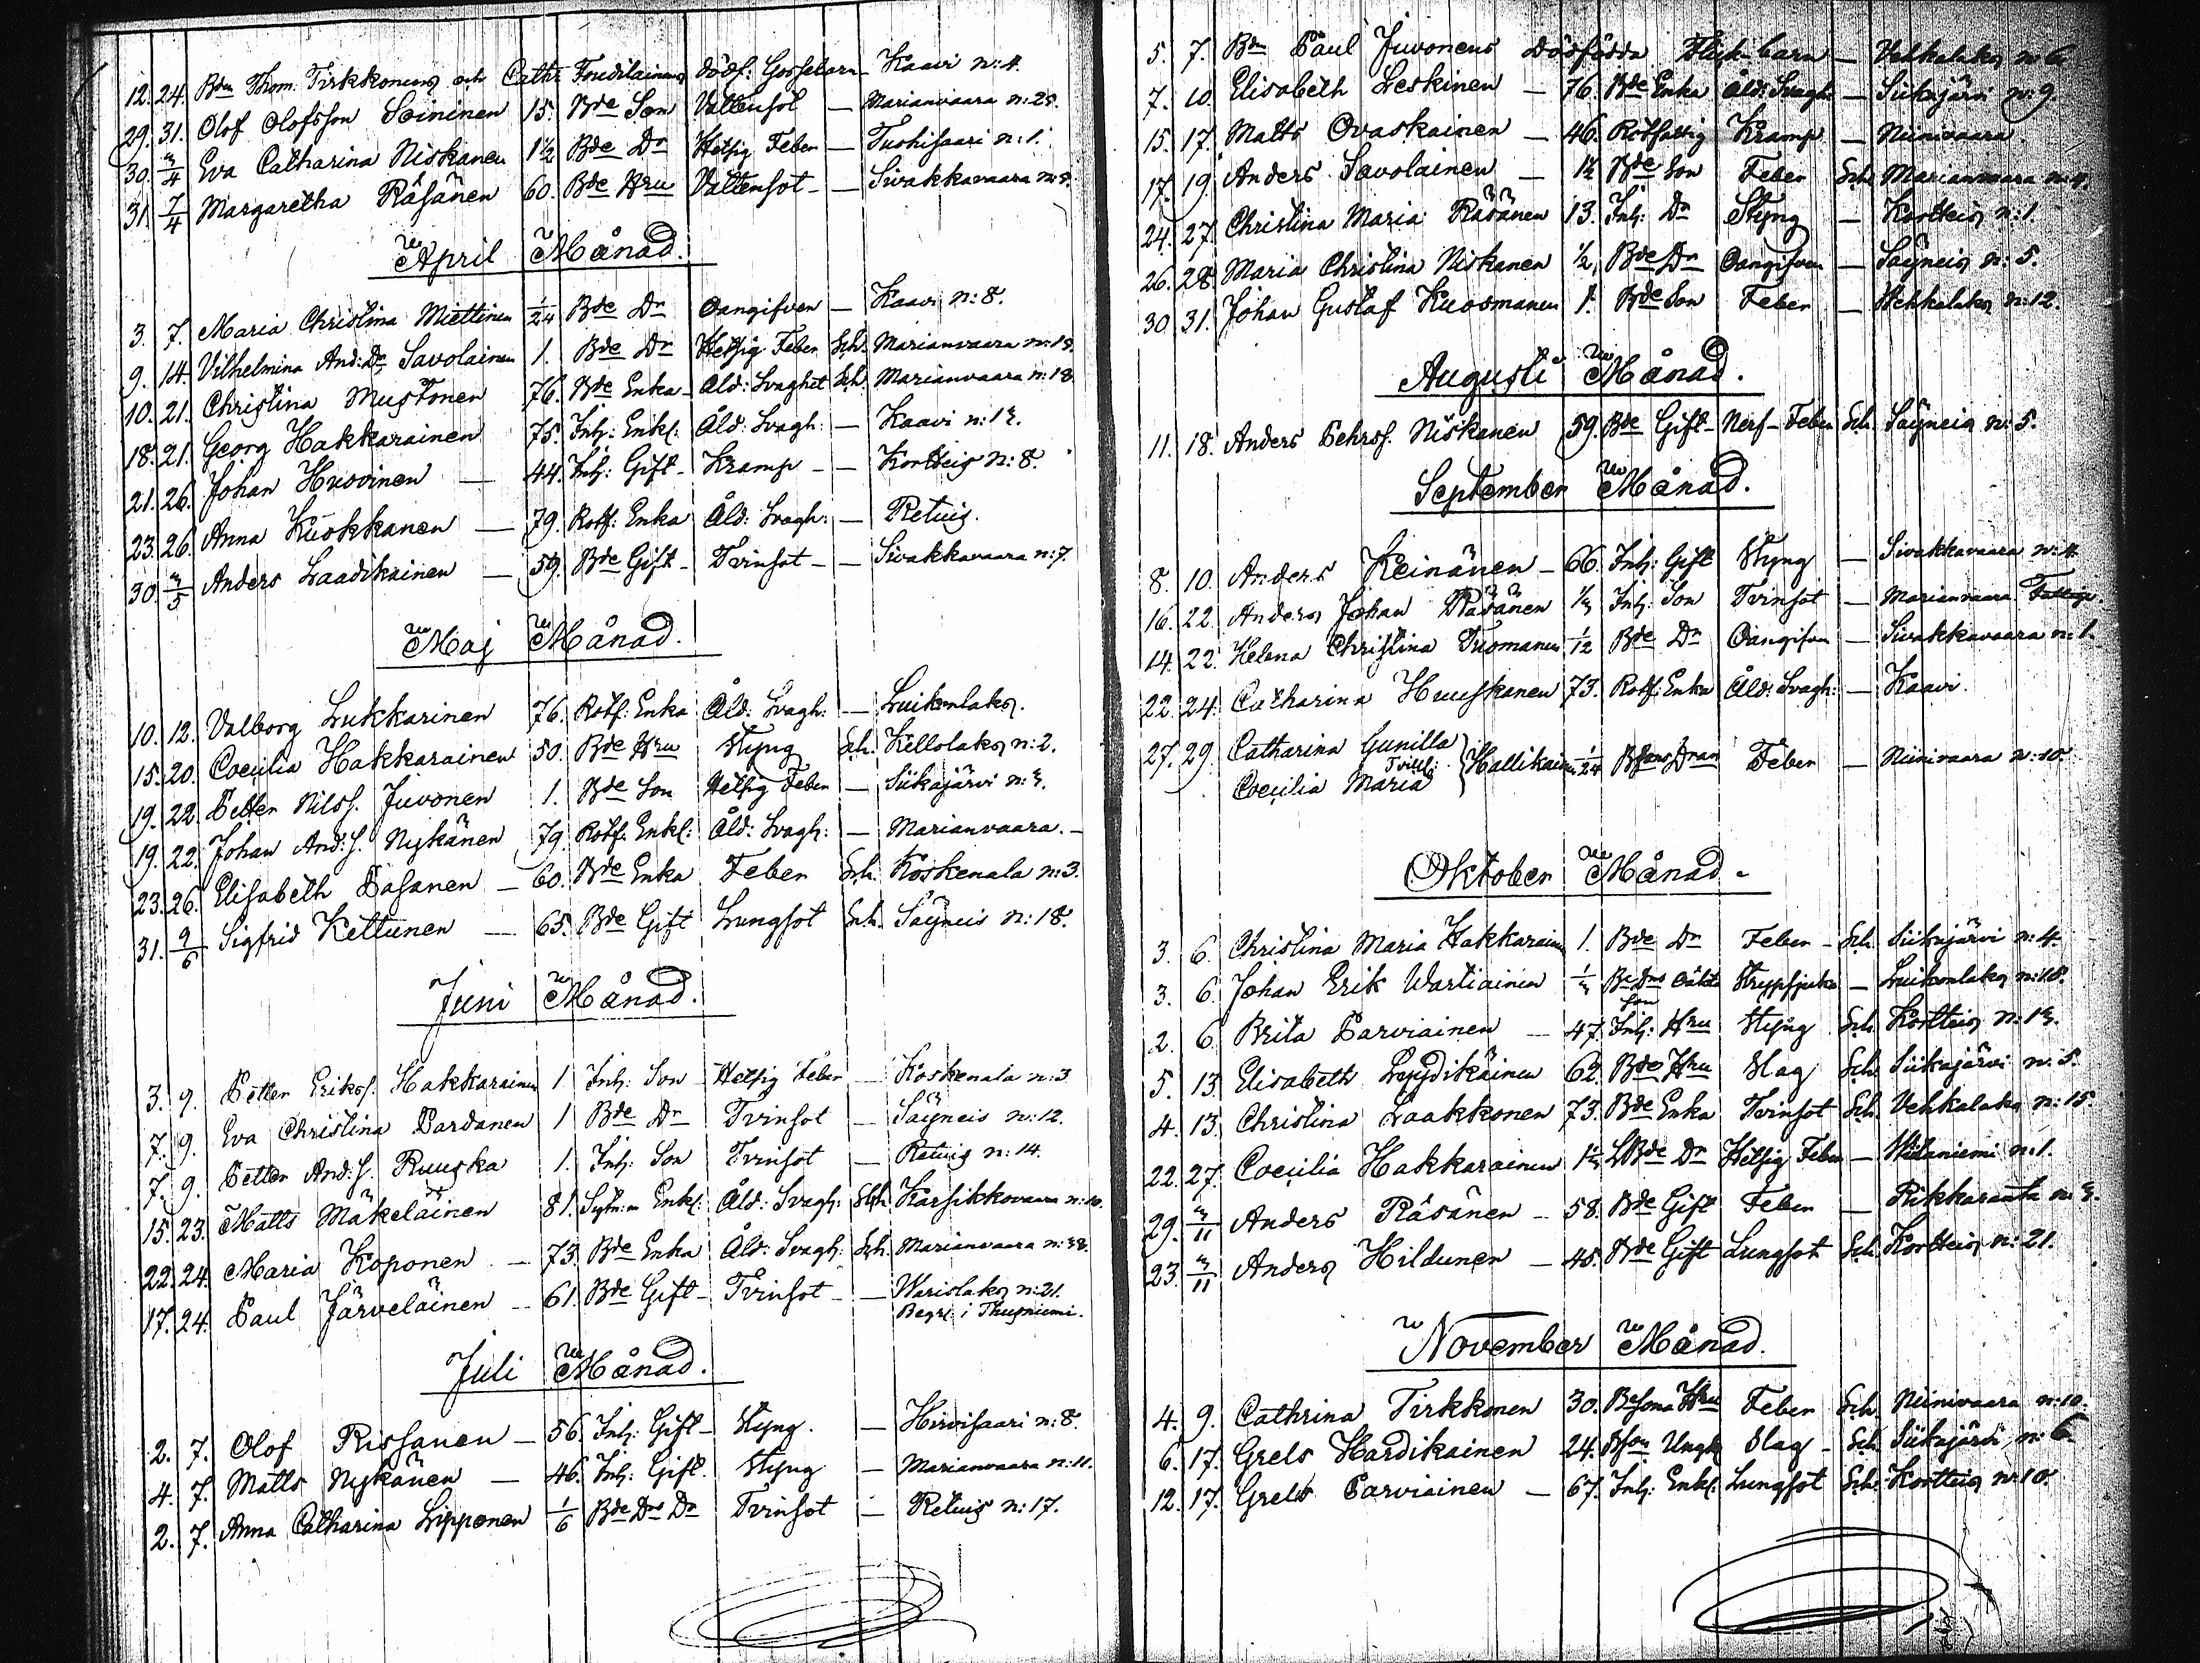 12. 24. Bdn Thom. Tirkkonens och Cathr. dödf: Gossebarn — Kaavi n:4.
29. 31. Olof Olofsson Soininen 15. Bde Son Vattensot — Marianvaara n:28.
30. 3/4 Eva Catharina Niskanen 1½ Bde Dr Hetsig Feber — Tuohisaari n:1.
31. 7/4 Margaretha Räsänen 60. Bde Hru Vattensot — Sivakkavaara n:8.
April Månad.
3. 7. Maria Christina Miettinen 1/24 Bde Dr Oangifven — Kaavi n:8.
9. 14. Vilhelmina And: Dr Savolainen 1. Bde Dr Hetsig Feber Sch. Marianvaara n:18.
10. 21. Christina Mustonen 76. Bde Enka Åld: Svaghet Sch. Marianvaara n:18
18. 21. Georg Hakkarainen 75. Inh: Enkl: Åld: Svagh: — Kaavi n:13.
21. 26. Johan Huovinen — 44. Inh: Gift Kramp — Kortteis n:8.
23. 26. Anna Kuokkanen — 79. Rotf: Enka Åld: Svagh: — Retuis.
30. 3/5 Anders Laadikainen — 59. Bde Gift Tvinsot — Sivakkavaara n:7.
Maj Månad.
10. 12. Valborg Lukkarinen 76. Rotf: Enka Åld: Svagh: — Luikonlaks.
15. 20. Coecilia Hakkarainen 50. Bde Hru Styng Sch. Kellolaks n:2.
19. 22. Petter Nilss. Juvonen 1. Bde Son Hetsig Feber — Siikajärvi n:3.
19. 22. Johan And: S. Nykänen 79. Rotf: Enkl: Åld: Svagh: — Marianvaara.
23. 26. Elisabeth Pasanen — 60. Bde Enka Feber Sch. Koskenala n:3.
31. 9/6 Sigfrid Kettunen — 65. Bde Gift Lungsot Sch. Säyneis n:18.
Juni Månad.
3. 9. Petter Erikss. Hakkarainen 1 Inh: Son Hetsig Feber — Koskenala n:3
7. 9. Eva Christina Pardanen 1 Bde Dr Tvinsot — Säyneis n:12.
7. 9. Petter And: S. Ruuska 1. Inh: Son Tvinsot — Retuis n:14.
15. 23. Matts Mäkeläinen 81. Enkl: Åld: Svagh: Sch. Karsikkovaara n:10.
22. 24. Maria Koponen — 73. Bde Enka Åld: Svagh: Sch. Marianvaara n:38.
17. 24. Paul Järveläinen — 61. Bde Gift Tvinsot —Варislaks n:21.
Begr: i Thusniemi.
Juli Månad.
2. 7. Olof Rissanen — 56. Inh: Gift Styng. — Hirvisaari n:8.
4. 7. Matts Nykänen — 46. Inh: Gift. Styng — Marianvaara n:11.
2. 7. Anna Catharina Lipponen 1/6 Bde Drs Dr Tvinsot — Retuis n:17.
5. 7. Bdn Paul Juvonens dödfödda Flick-barn — Vehkalaks n:6.
7. 10. Elisabeth Leskinen — 76. Bde Enka Åld: Svagh: — Siikajärvi n:9.
15. 17. Matts Ovaskainen — 46. Rotfattig Kramp — Niinivaara.
17. 19. Anders Savolainen — 1½ Bde Son Feber Sch. Marianvaara n:4.
24. 27. Christina Maria Räsänen 13. Inh: Dr Styng — Kortteis n:1.
26. 28. Maria Christina Niskanen ½ Bde Dr Oangifven — Säyneis n:5.
30. 31. Johan Gustaf Kuosmanen 1. Bde Son Feber — Vehkalaks n:12.
Augusti Månad.
11. 18. Anders Pehrss. Niskanen 59. Bde Gift Nerf-Feber Sch. Säyneis n:5.
September Månad.
8. 10. Anders Keinänen — 66. Inh: Gift Styng — Sivakkavaara n:4.
16. 22. Anders Johan Räsänen ⅓ Inh: Son Tvinsot — Marianvaara
14. 22. Helena Christina Tuomanen 1/12 Bde Dr Oangifven — Sivakkavaara n:1.
22. 24. Catharina Huuskanen 73. Rotf: Enka Åld: Svagh: — Kaavi.
27. 29. Catharina Gunilla Tvill: Hallikainen 1/24 Feber — Niinivaara n:10.
Coecilia Maria
Oktober Månad.
3. 6. Christina Maria Hakkarainen 1. Bde Dr Feber Sch. Siikajärvi n:4.
3. 6. Johan Erik Wartiainen ⅓ Bde Drs oäkta Son Strypsjuka — Luikonlaks n:18.
2. 6. Brita Parviainen — 47. Inh: Hru Styng Sch. Kortteis n:13.
5. 13. Elisabeth 62. Bde Hru Slag Sch. Siikajärvi n:5.
4. 13. Christina Laakkonen 73. Bde Enka Tvinsot Sch. Vehkalaks n:15.
22. 27. Coecilia Hakkarainen Bde Dr Hetsig Feber — n:1.
29. 3/11 Anders Räsänen — 58. Bde Gift Feber — Rikkaranta n:3.
23. 3/11 Anders Hildunen — 45. Bde Gift Lungsot Sch. Kortteis n:21.
November Månad.
4. 9. Cathrina Tirkkonen 30. Hru Feber Sch. Niinivaara n:10.
6. 17. Grels Hardikainen 24. Slag Sch. Siikajärvi n:6
12. 17. Grels Parviainen — 67. Inh: Enkl: Lungsot Sch. Kortteis n:10.